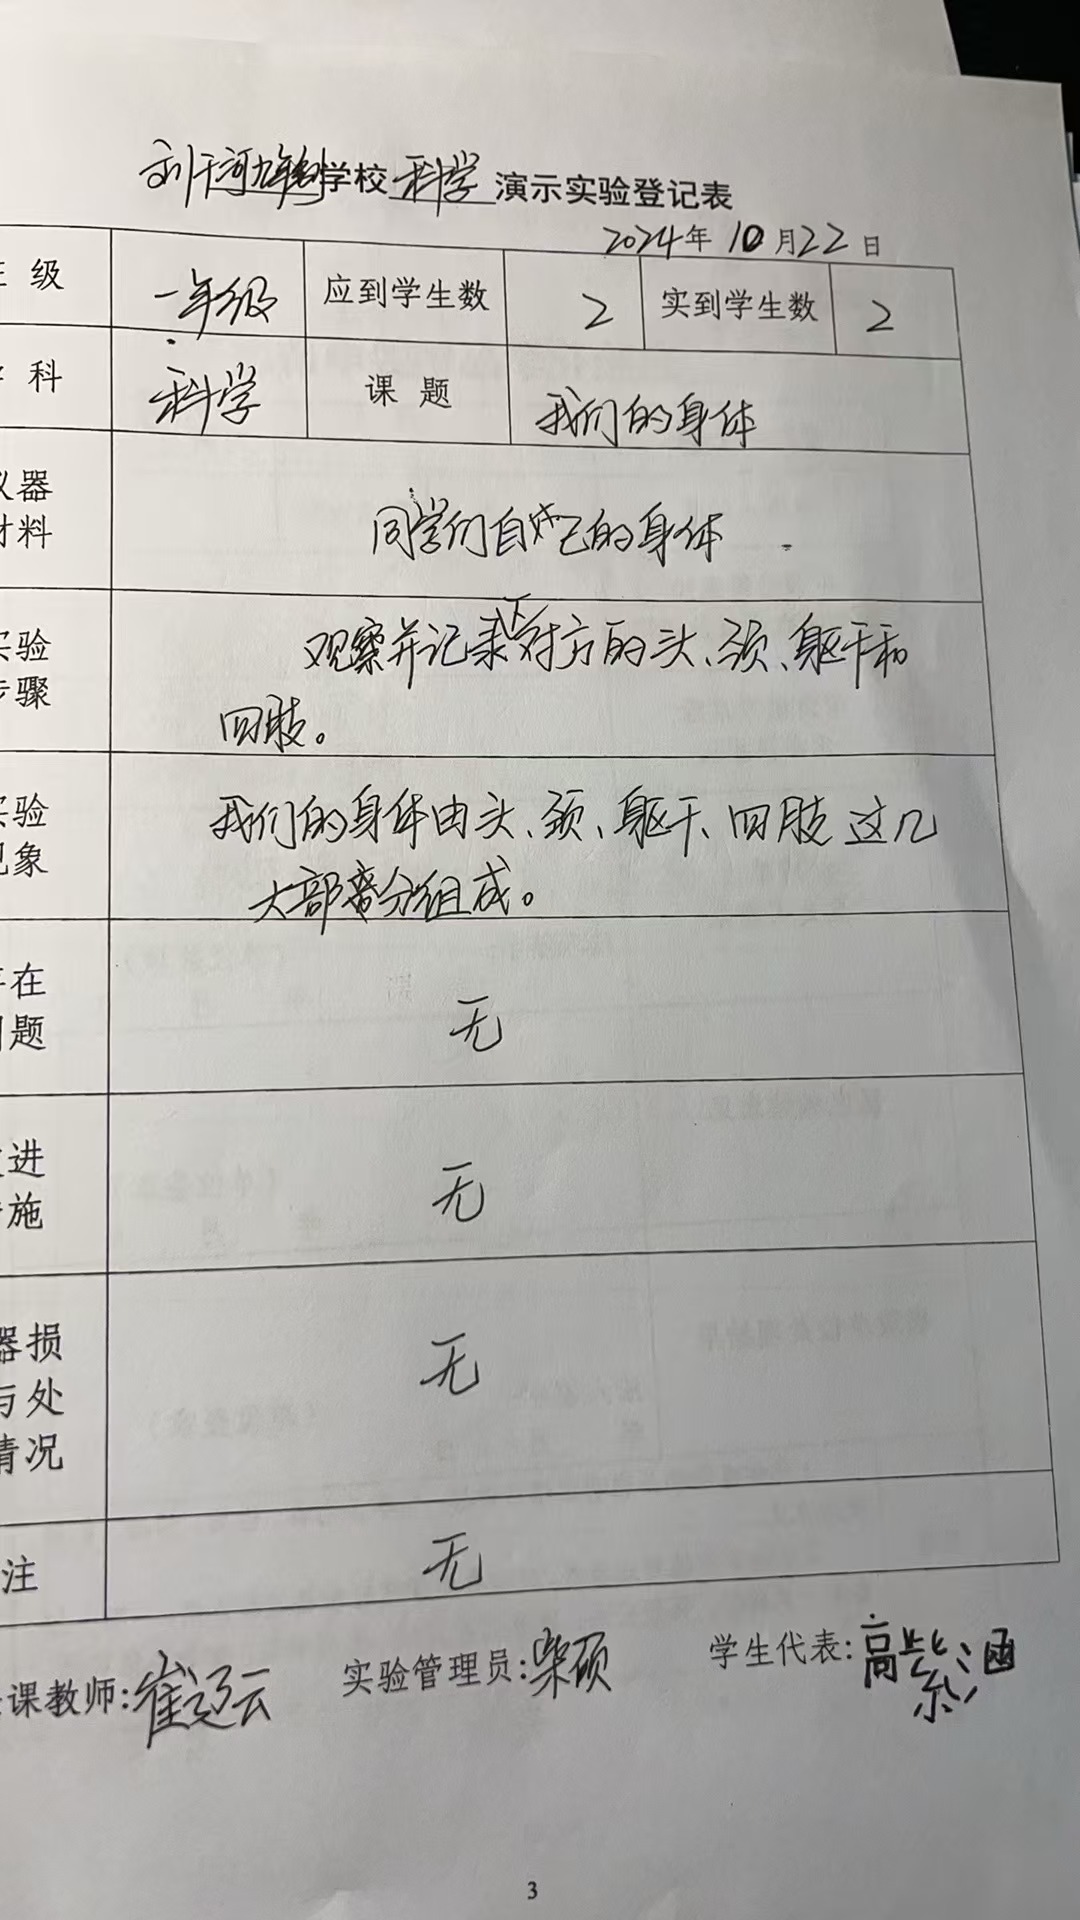 刘干河九年制学校 科学 演示实验登记表
2024年10月22日
级 一年级 应到学生数 2 实到学生数 2
科 科学 课题 我们的身体
仪器
材料
同学们自己的身体
实验
步骤
观察并记录下对方的头、颈、躯干和
四肢。
实验
现象
我们的身体由头、颈、躯干、四肢这几
大部分组成。
存在
问题
无
改进
措施
无
器损
与处
情况
无
注 无
课教师:崔 云 实验管理员:柴硕 学生代表:高紫涵
3